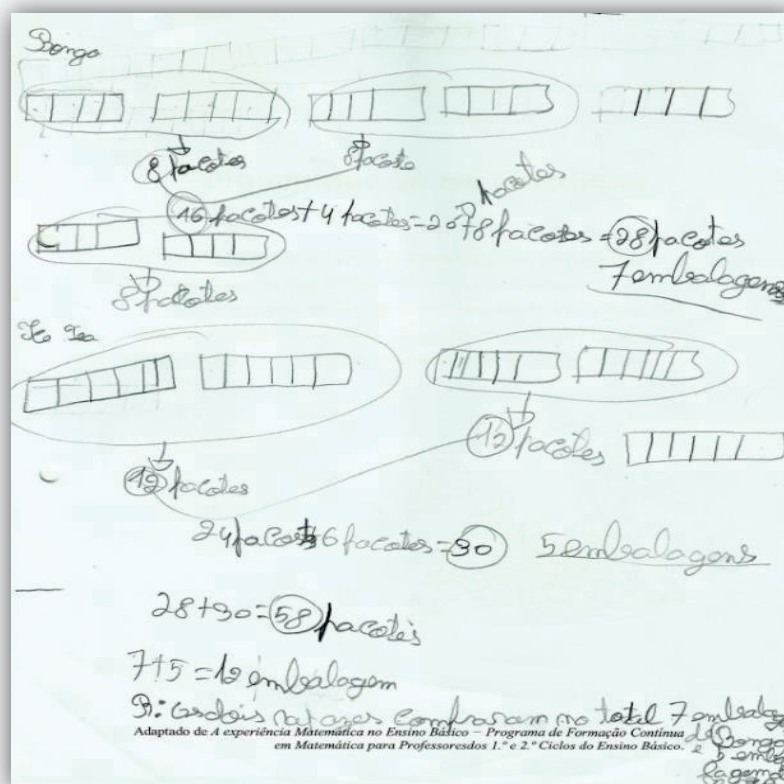 Bongo
8 pacotes
8 pacote
16 pacotes + 4 pacotes = 20 + 8 pacotes = 28 pacotes
pacotes
7 embalagens
8 pacotes
Ice Tea
12 pacotes
12 pacotes
24 pacotes + 6 pacotes = 30
5 embalagens
28 + 30 = 58 pacotes
7 + 5 = 12 embalagem
R: os dois rapazes compraram no total 7 embala
de Bongo
e 5 emba
lagem
Adaptado de A experiência Matemática no Ensino Básico – Programa de Formação Contínua
em Matemática para Professoresdos 1.º e 2.º Ciclos do Ensino Básico.